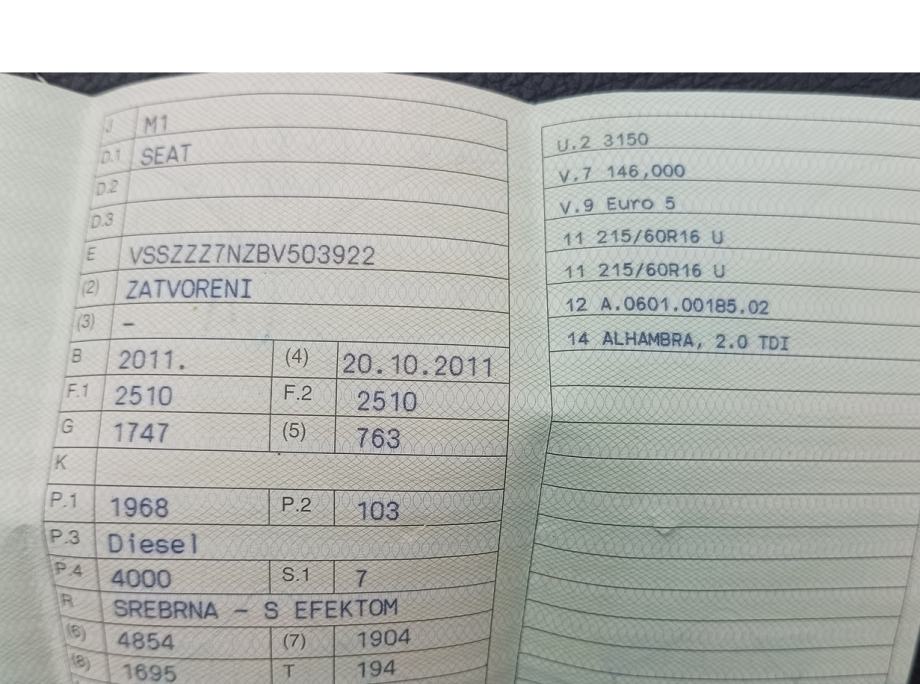 J M1
D.1 SEAT
D.2
D.3
E VSSZZZ7NZBV503922
(2) ZATVORENI
(3) –
B 2011. (4) 20.10.2011
F.1 2510 F.2 2510
G 1747 (5) 763
K
P.1 1968 P.2 103
P.3 Diesel
P.4 4000 S.1 7
R SREBRNA – S EFEKTOM
(6) 4854 (7) 1904
(8) 1695 T 194
U.2 3150
V.7 146,000
V.9 Euro 5
11 215/60R16 U
11 215/60R16 U
12 A.0601.00185.02
14 ALHAMBRA, 2.0 TDI